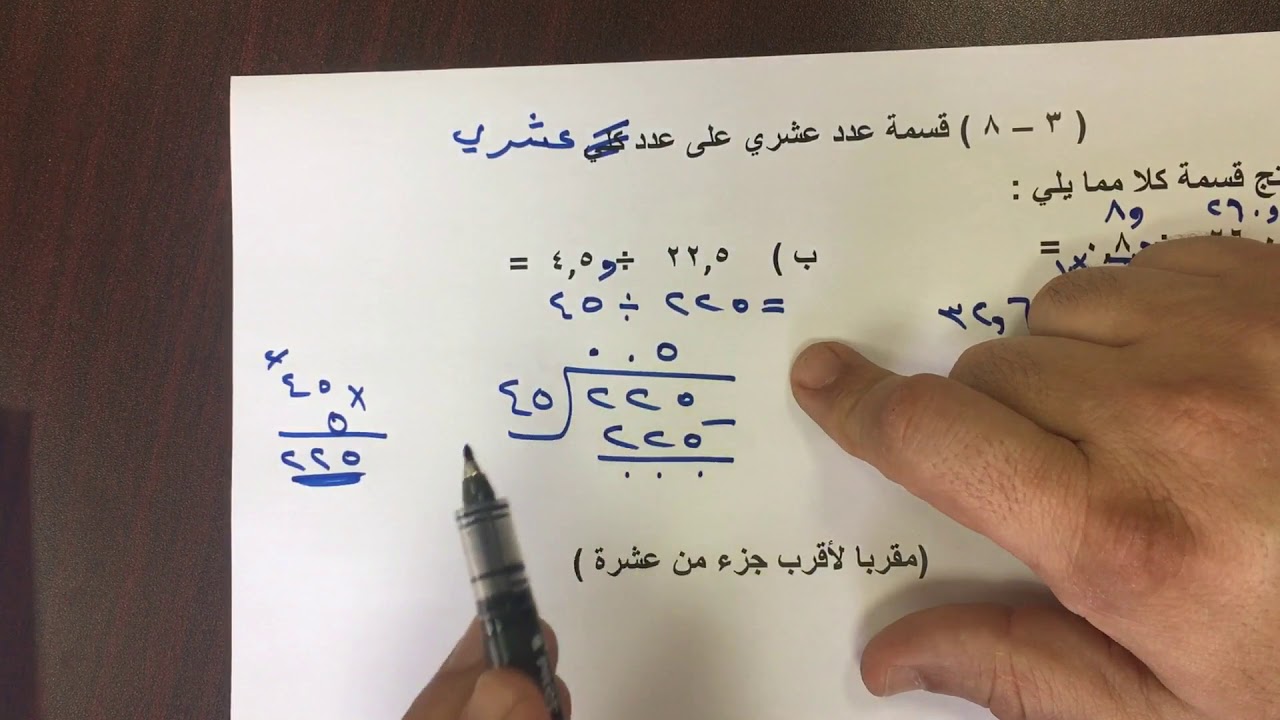 ( ٣ – ٨ ) قسمة عدد عشري على عدد عشري
قسمة كلا مما يلي :
و٨
ب ) ٢٢,٥ ÷ ٤,٥ =
= ٢٢٥ ÷ ٤٥
٣٢و٦
٠٠٥
٤٥ ٢٢٥
٢٢٥ –
٠٠٠
٤٥ ×
٥
٢٢٥
(مقربا لأقرب جزء من عشرة )